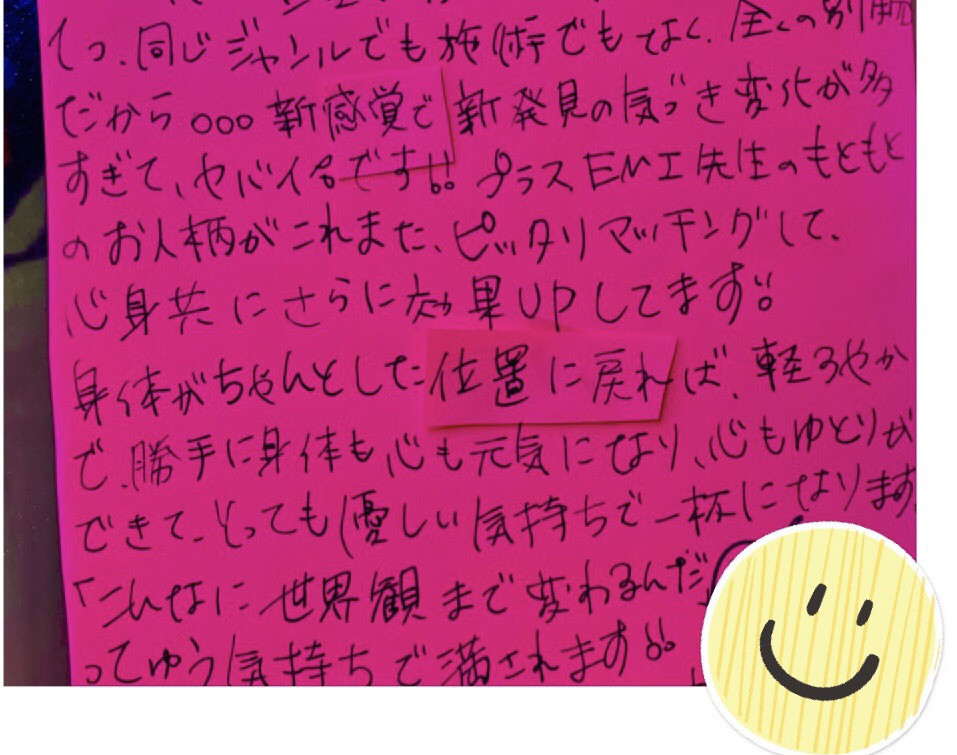 って、同じジャンルでも施術でもなく、全くの別物
だから○○○新感覚で新発見の気づき変化が多
すぎて、ヤバイ位です!! プラスEMI先生のもともと
のお人柄がこれまた、ピッタリマッチングして、
心身共にさらに効果UPしてます!!
身体がちゃんとした位置に戻れば、軽るやか
で、勝手に身体も心も元気になり、心もゆとりが
できて、とっても優しい気持ちで一杯になります
「こんなに世界観まで変わるんだ」
ってゆう気持ちで満されます!!